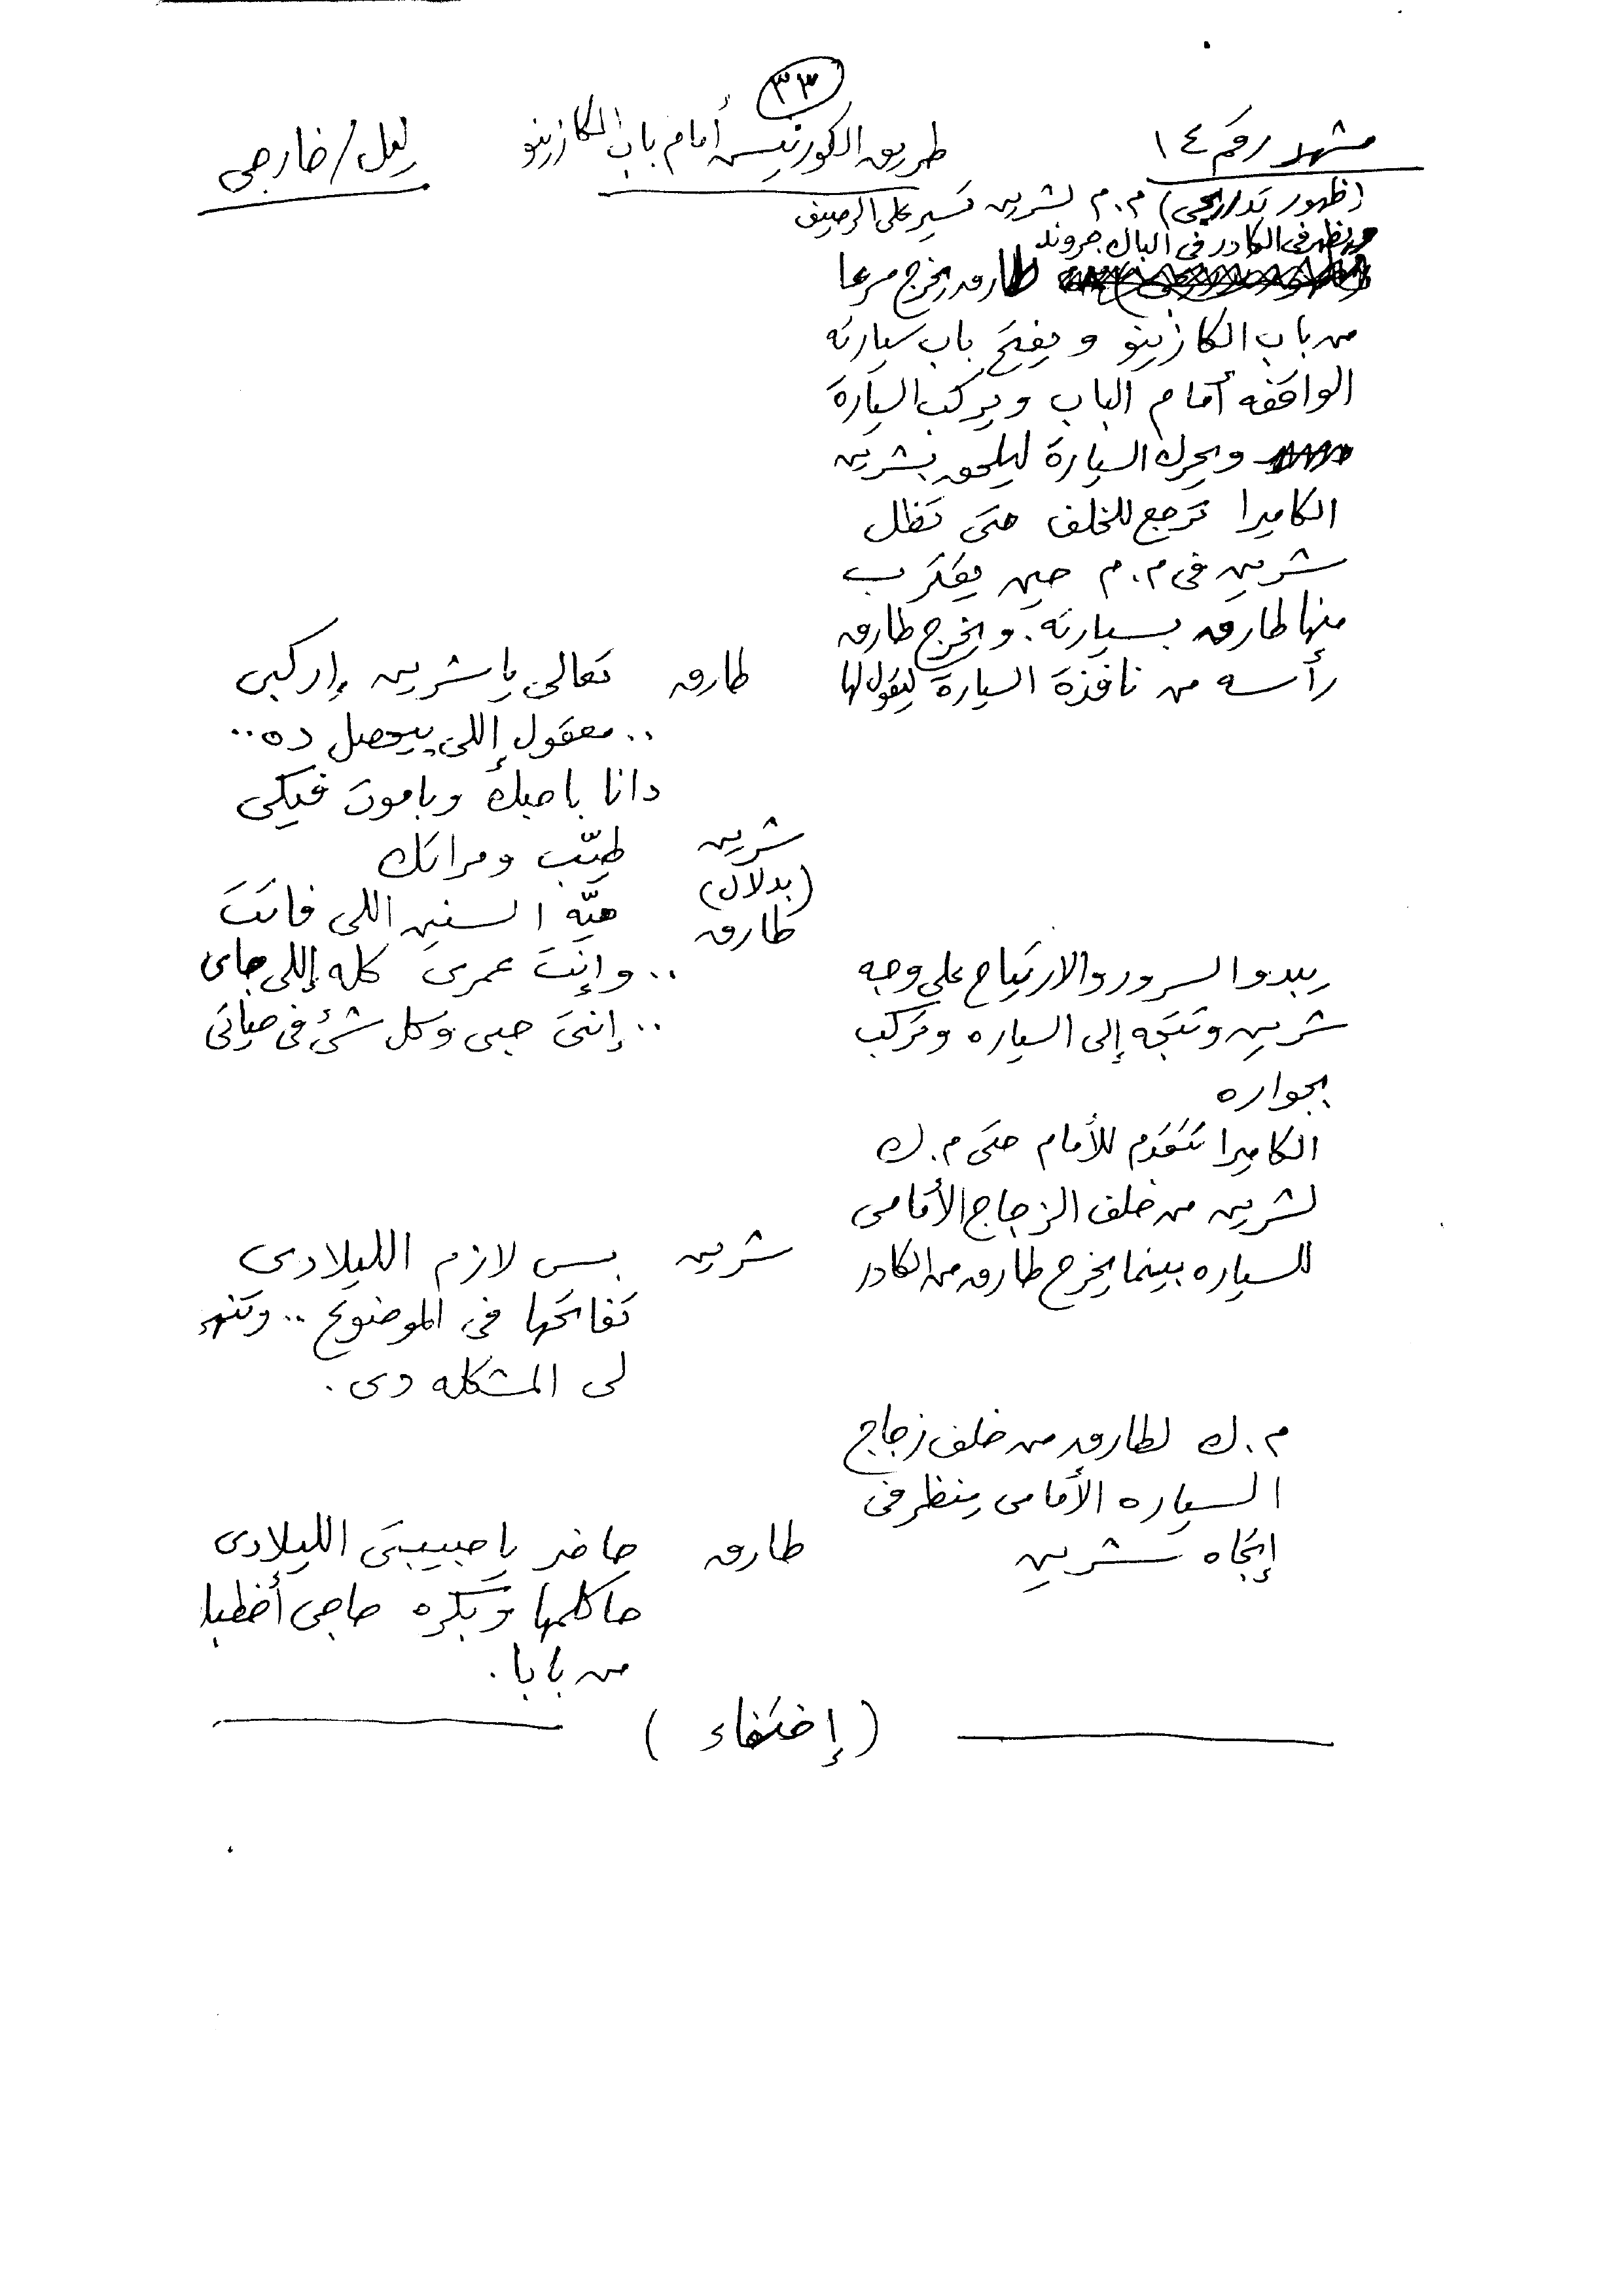 ٣٣
مشهد رقم ١٤
طريق الكورنيش أمام باب الكازينو
ليل/خارجى
(ظهور تدريجى) م.م لشرين تسير على الرصيف
ويظهر فى الكادر فى الباك جروند
طارق يخرج مسرعا
من باب الكازينو ويفتح باب سيارته
الواقفه أمام الباب ويركب السيارة
ويحرك السيارة ليلحق بشرين
الكاميرا ترجع للخلف حتى تظل
شرين فى م.م حين يقترب
منها طارق بسيارته. ويخرج طارق
رأسه من نافذة السيارة ليقول لها
طارق تعالى ياشرين إركبى
.. معقول إللى بيحصل ده ..
دانا باحبك وباموت فيكى
شرين طيّب ومراتك
(بدلال)
طارق هيّه السنين اللى فاتت
.. وإنتَ عمرى كله إللى جاى
.. إنتى حبى وكل شئ فى حياتى
يبدوا السرور والارتياح على وجه
شرين وتتجه إلى السياره وتركب
بجواره
الكاميرا تتقدم للأمام حتى م.ك
لشرين من خلف الزجاج الأمامى
للسياره بينما يخرج طارق من الكادر
شرين بس لازم الليلادى
تفاتحها فى الموضوع .. وتنهـ
لى المشكله دى.
م.ك لطارق من خلف زجاج
السياره الأمامى ينظر فى
إتجاه شرين
طارق حاضر ياحبيبتى الليلادى
حاكلمها وبكره حاجى أخطبك
من بابا.
(إختفاء)